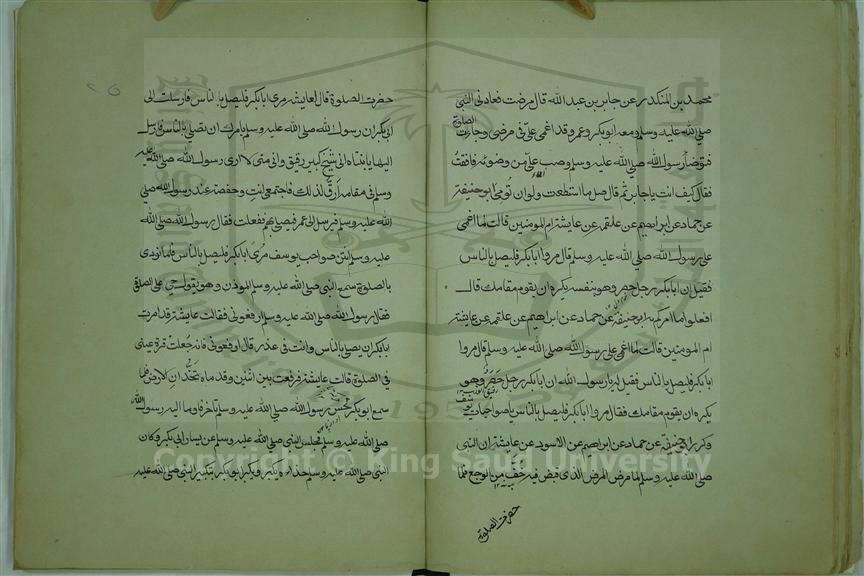 محمد بن المنكدر عن جابر بن عبد الله قال مرضت فعادني النبي
صلى الله عليه وسلم ومعه ابو بكر وعمر وقد اغمى علىّ في مرضى وجاءت الصلوة
فتوضأ رسول الله صلى الله عليه وسلم وصب علىّ من وضوئه فافقت
فقال كيف انت يا جابر ثم قال صل ما استطعت ولو ان تومى ابو حنيفة
عن حماد عن ابراهيم عن علقمه عن عايشة ام المومنين قالت لما اغمى
على رسول الله صلى الله عليه وسلم قال مروا ابا بكر فليصل بالناس
فقيل ان ابا بكر رجل حصر وهو بنفسه يكره ان يقوم مقامك قال
افعلوا ما امركم به ابو حنيفة عن حماد عن ابراهيم عن علقمه عن عايشة
ام المومنين قالت لما اغمى على رسول الله صلى الله عليه وسلم قال مروا
ابا بكر فليصل بالناس فقيل له يا رسول الله ان ابا بكر رجل حصر وهو
يكره ان يقوم مقامك فقال مروا ابا بكر فليصل بالناس يا صواحبات يوسف
وكرر ابو حنيفة عن حماد عن ابراهيم عن الاسود عن عائشة ان النبي
صلى الله عليه وسلم لما مرض المرض الذي قبض فيه خف من الوجع فلما
حضرت الصلوة
حضرت الصلوة قال لعايشة مرى ابا بكر فليصل بالناس فارسلت الى
ابى بكر ان رسول الله صلى الله عليه وسلم يامرك ان تصلى بالناس فارسل
اليها يا بنتاه انى شيخ كبير رقيق وانى متى لا ارى رسول الله صلى الله عليه
وسلم في مقامه ارق لذلك فاجتمعى انت وحفصة عند رسول الله صلى
الله عليه وسلم فيرسل الى عمر فيصلى بهم ففعلت فقال رسول الله صلى الله
عليه وسلم انتن صواحب يوسف مرى ابا بكر فليصل بالناس فلما نودى
بالصلوة سمع النبي صلى الله عليه وسلم الموذن وهو يقول حى على الصلوة
فقال رسول الله صلى الله عليه وسلم ارفعونى فقالت عايشة قد امرت
ابا بكر ان يصلى بالناس وانت في عذر قال ارفعونى فانه جعلت قرة عينى
في الصلوة قالت عايشة فرفعت بين اثنين وقدماه تخدان الارض فلما
سمع ابو بكر بحس رسول الله صلى الله عليه وسلم تاخر فاوما اليه رسول الله
صلى الله عليه وسلم فجلس النبي صلى الله عليه وسلم عن يسار ابى بكر وكان
النبي صلى الله عليه وسلم حذاءه يكبر ويكبر ابو بكر بتكبير النبي صلى الله عليه
Copyright © King Saud University
1957